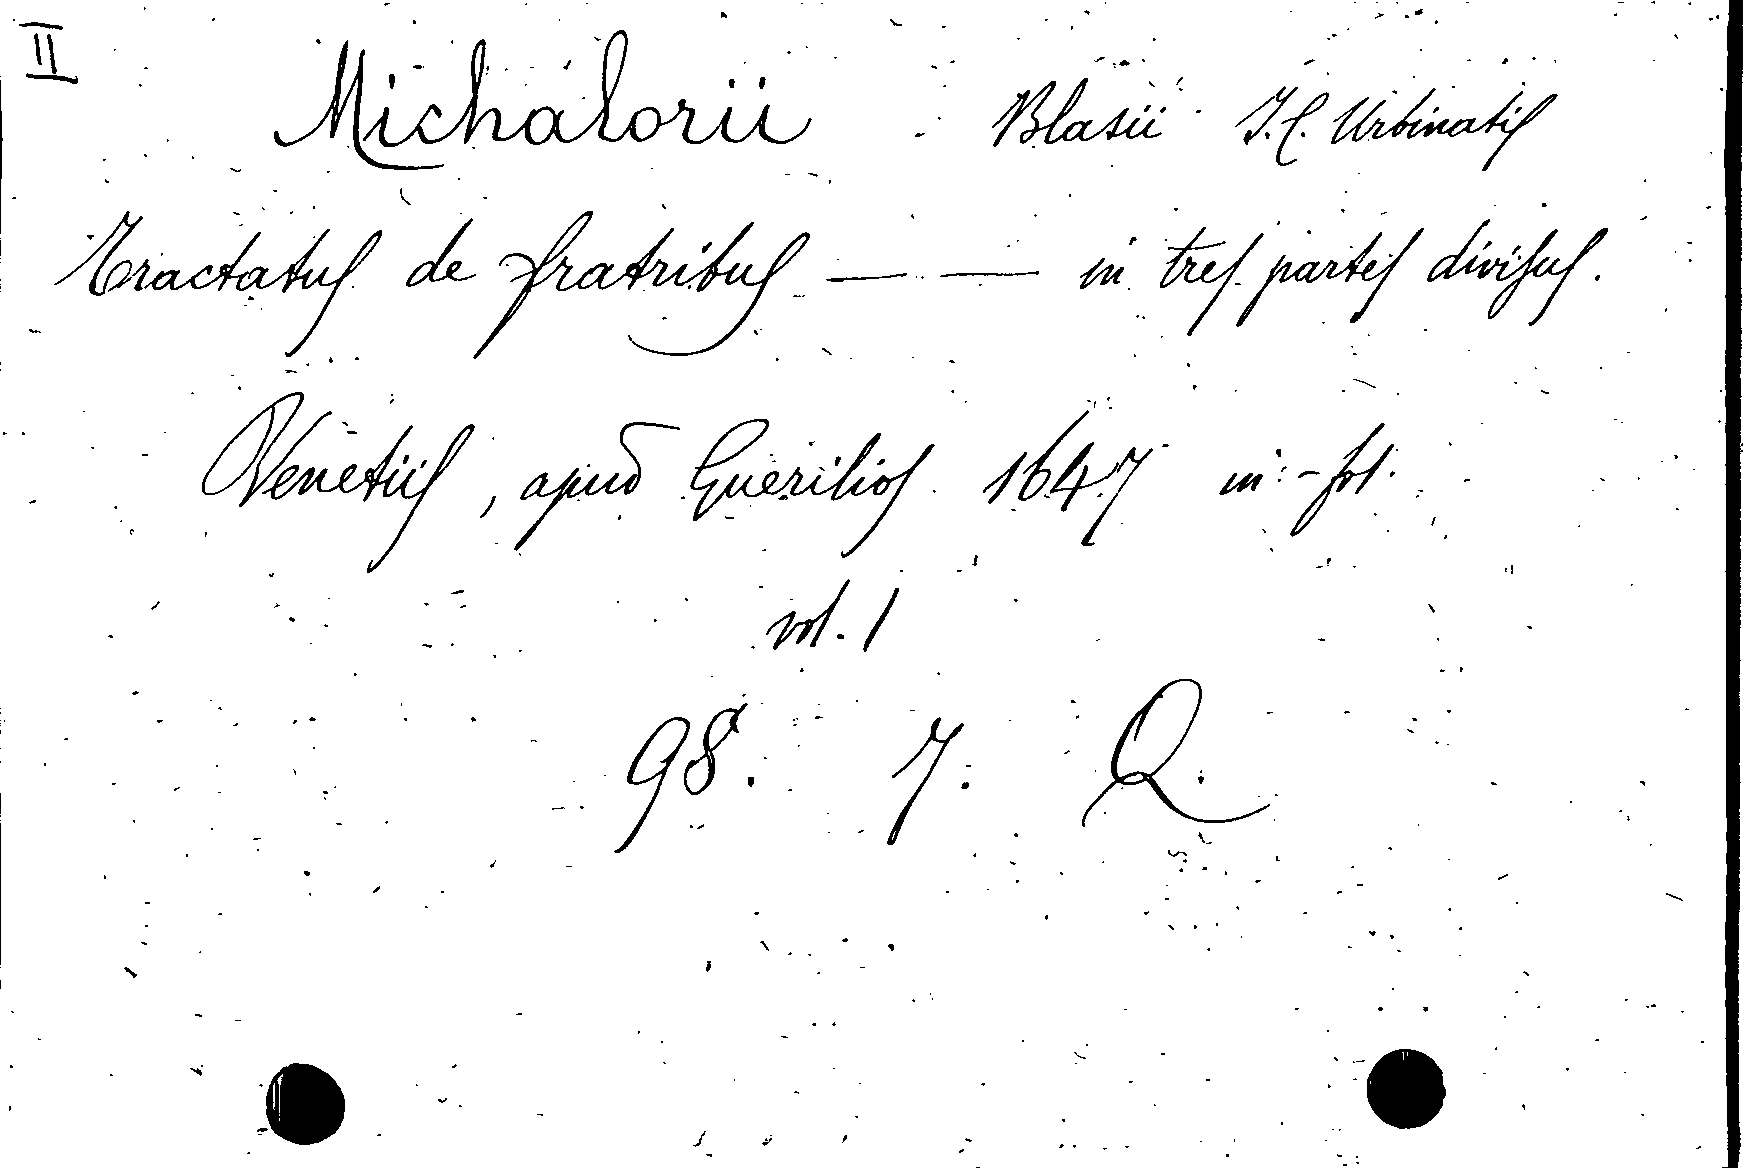 II
Michalorii Blasii J.C. Urbinatis
Tractatus de fratribus — — in tres partes divisus.
Venetiis, apud Guerilios 1647 in-fol.
vol. 1
98. 7. Q.